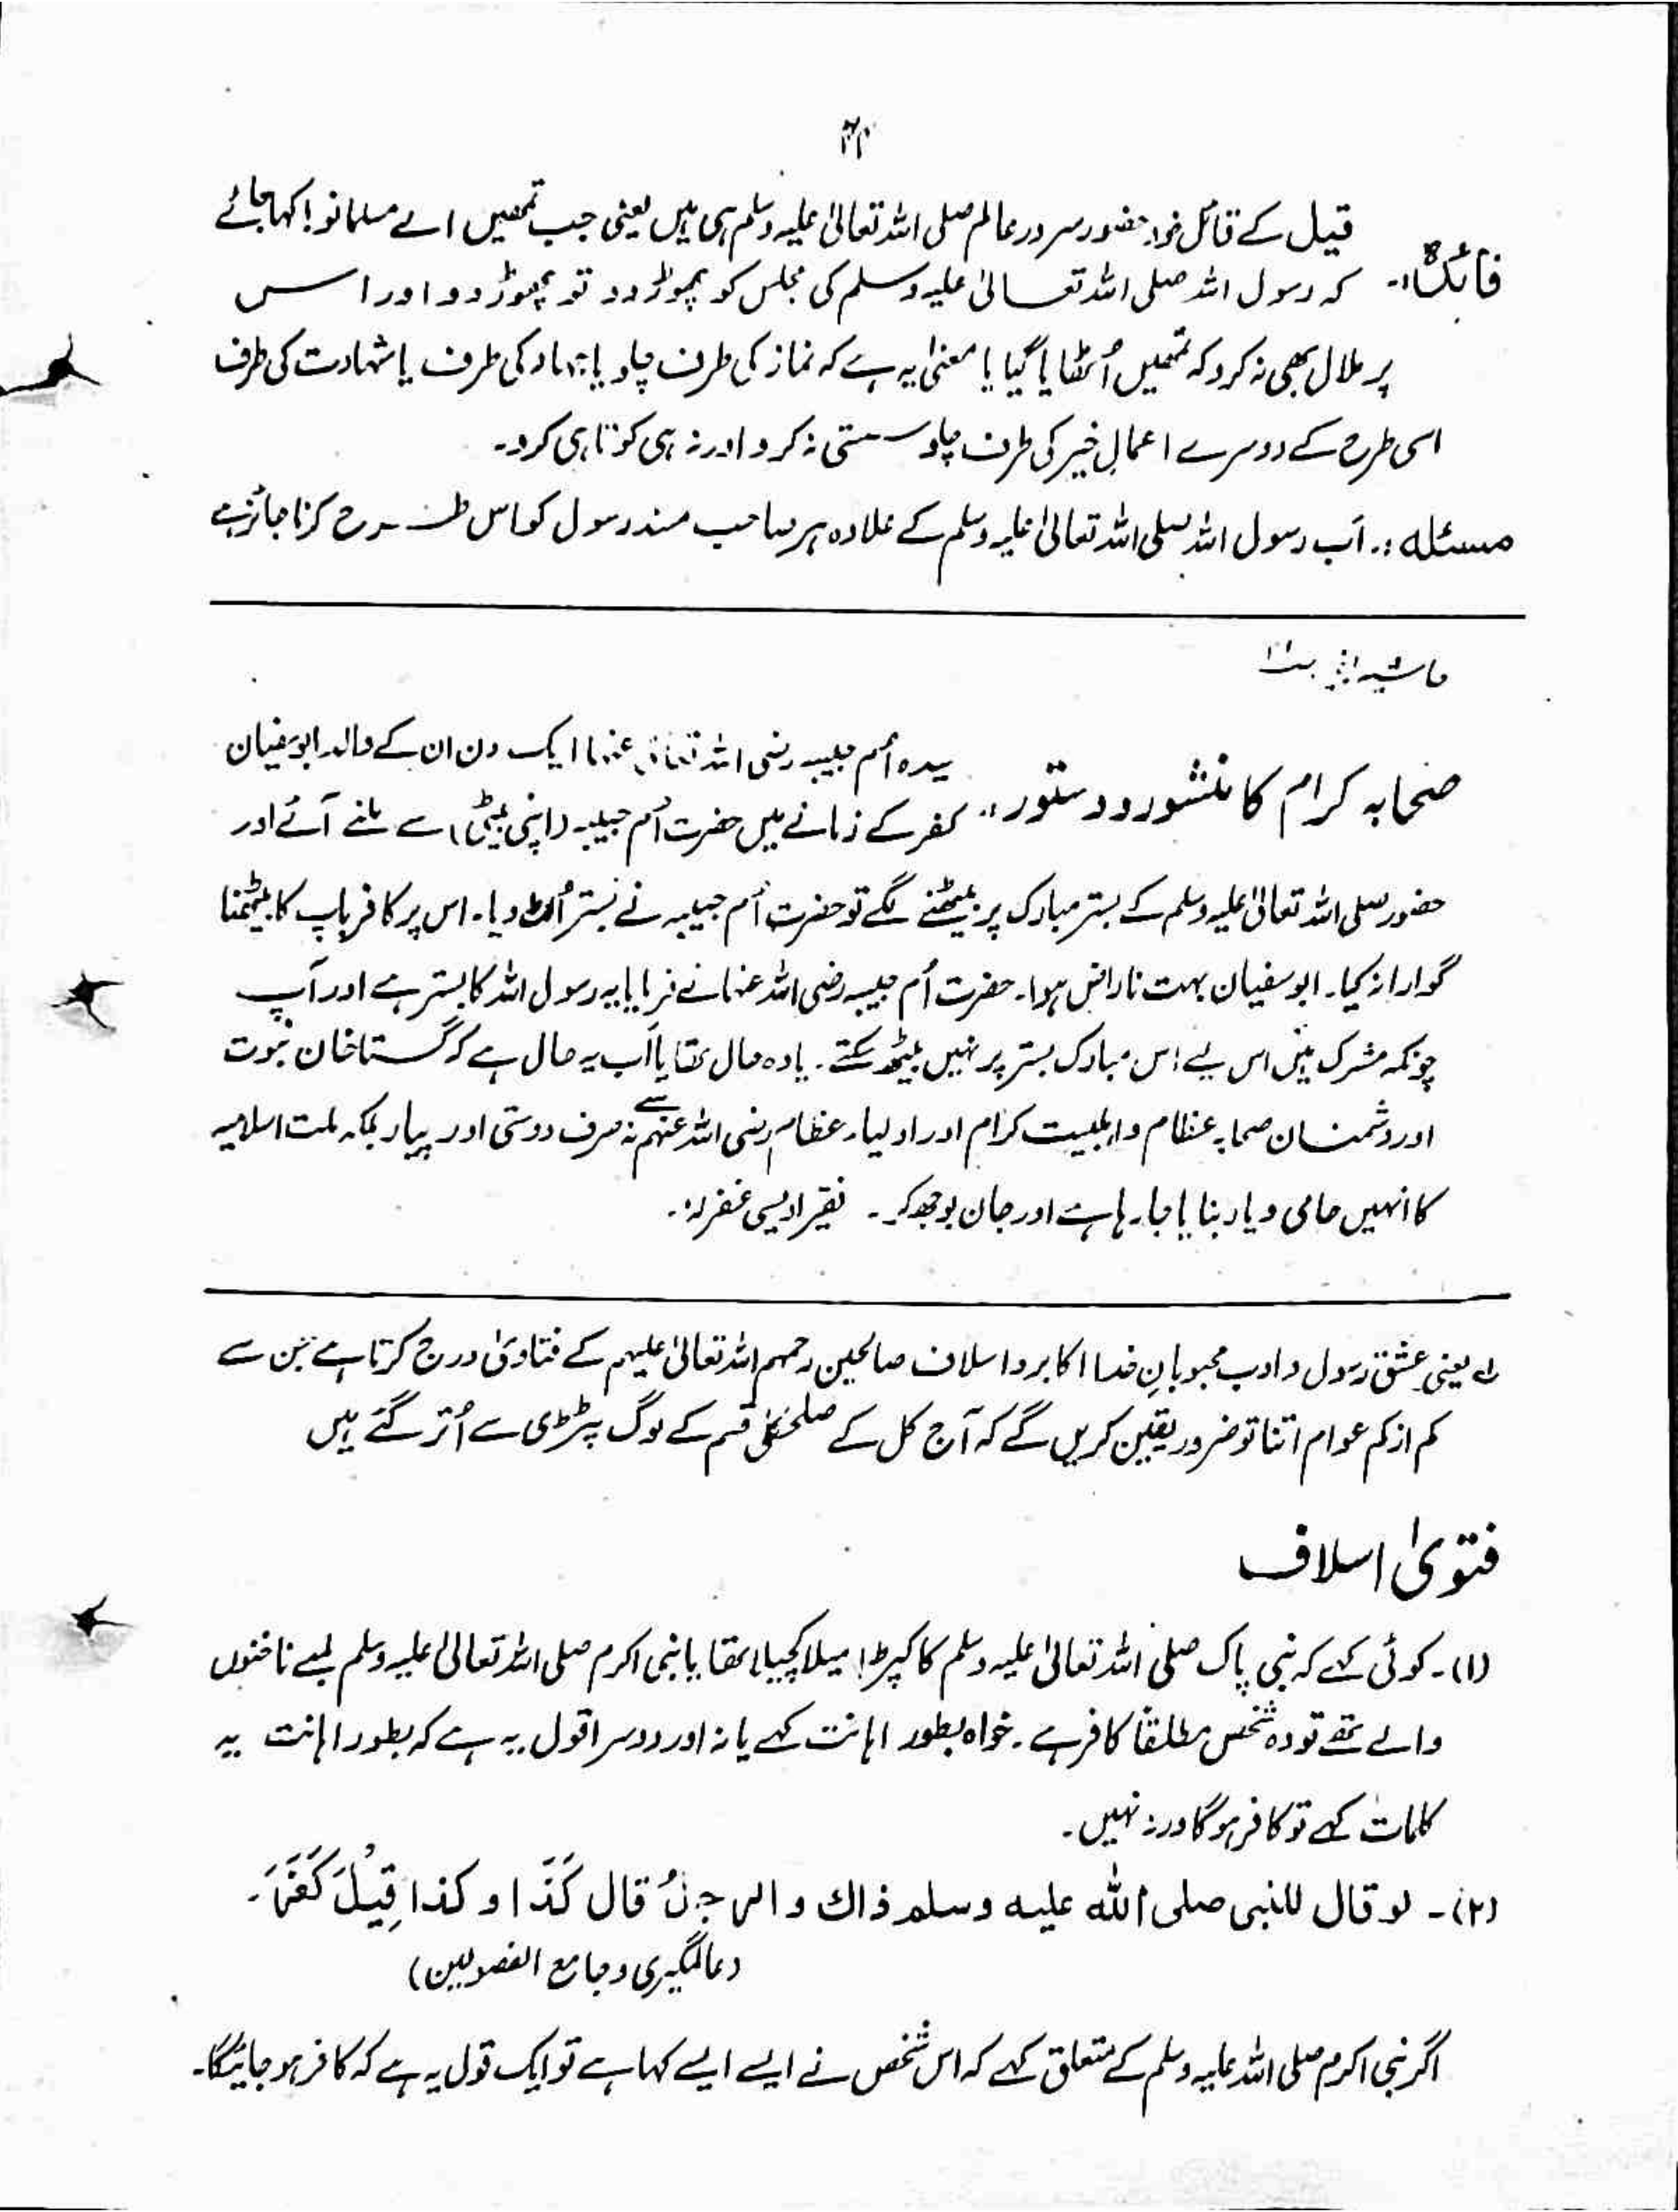 ۲۲
قیل کے قائل خود حضور سرور عالم صلی اللہ تعالیٰ علیہ وسلم ہی ہیں یعنی جب تمھیں اے مسلمانو! کہا جائے
فائدہ:۔ کہ رسول اللہ صلی اللہ تعالیٰ علیہ وسلم کی مجلس کو چھوڑ دو تو چھوڑ دو اور اس
پر ملال بھی نہ کرو کہ تمھیں اُٹھایا گیا یا معنیٰ یہ ہے کہ نماز کی طرف چلو یا جہاد کی طرف یا شہادت کی طرف
اسی طرح کے دوسرے اعمالِ خیر کی طرف چلو سستی نہ کرو اور نہ ہی کوتاہی کرو۔
مسئلہ:۔ اَب رسول اللہ صلی اللہ تعالیٰ علیہ وسلم کے علاوہ ہر صاحب مسند رسول کو اس طرح کرنا جائز ہے
حاشیہ
صحابہ کرام کا منشور و دستور:۔ سیدہ اُم حبیبہ رضی اللہ تعالیٰ عنہا ایک دن ان کے والد ابوسفیان
کفر کے زمانے میں حضرت اُم حبیبہ (اپنی بیٹی) سے ملنے آئے اور
حضور صلی اللہ تعالیٰ علیہ وسلم کے بستر مبارک پر بیٹھنے لگے تو حضرت اُم حبیبہ نے بستر اُلٹ دیا۔ اس پر کافر باپ کا بیٹھنا
گوارا نہ کیا۔ ابوسفیان بہت ناراض ہوا۔ حضرت اُم حبیبہ رضی اللہ عنہا نے فرمایا یہ رسول اللہ کا بستر ہے اور آپ
چونکہ مشرک ہیں اس لیے اس مبارک بستر پر نہیں بیٹھ سکتے۔ یا وہ حال تھا یا اَب یہ حال ہے کہ گستاخان نبوت
اور دشمنان صحابہ عظام و اہلبیت کرام اور اولیاء عظام رضی اللہ عنہم سے نہ صرف دوستی اور پیار بلکہ ملت اسلامیہ
کا انہیں حامی و یار بنایا جا رہا ہے اور جان بوجھ کر۔ فقیر اویسی غفرلہٗ۔
لے یعنی عشق رسول و ادب محبوبانِ خدا اکابر و اسلاف صالحین رحمہم اللہ تعالیٰ علیہم کے فتاویٰ درج کرتا ہے جن سے
کم از کم عوام اتنا تو ضرور یقین کریں گے کہ آج کل کے صلحکلی قسم کے لوگ پٹڑی سے اُتر گئے ہیں
فتویٰ اسلاف
(۱)۔ کوئی کہے کہ نبی پاک صلی اللہ تعالیٰ علیہ وسلم کا کپڑا میلا کچیلا تھا یا نبی اکرم صلی اللہ تعالیٰ علیہ وسلم لمبے ناخنوں
والے تھے تو وہ شخص مطلقاً کافر ہے۔ خواہ بطور اہانت کہے یا نہ اور دوسرا قول یہ ہے کہ بطور اہانت یہ
کلمات کہے تو کافر ہو گا ورنہ نہیں۔
(۲)۔ لو قال للنبی صلی اللہ علیہ وسلم ذاك والرجلُ قال كَذَا و كذا قِیْلَ كَفَرَ۔
(عالمگیری و جامع الفصولین)
اگر نبی اکرم صلی اللہ علیہ وسلم کے متعلق کہے کہ اس شخص نے ایسے ایسے کہا ہے تو ایک قول یہ ہے کہ کافر ہو جائیگا۔